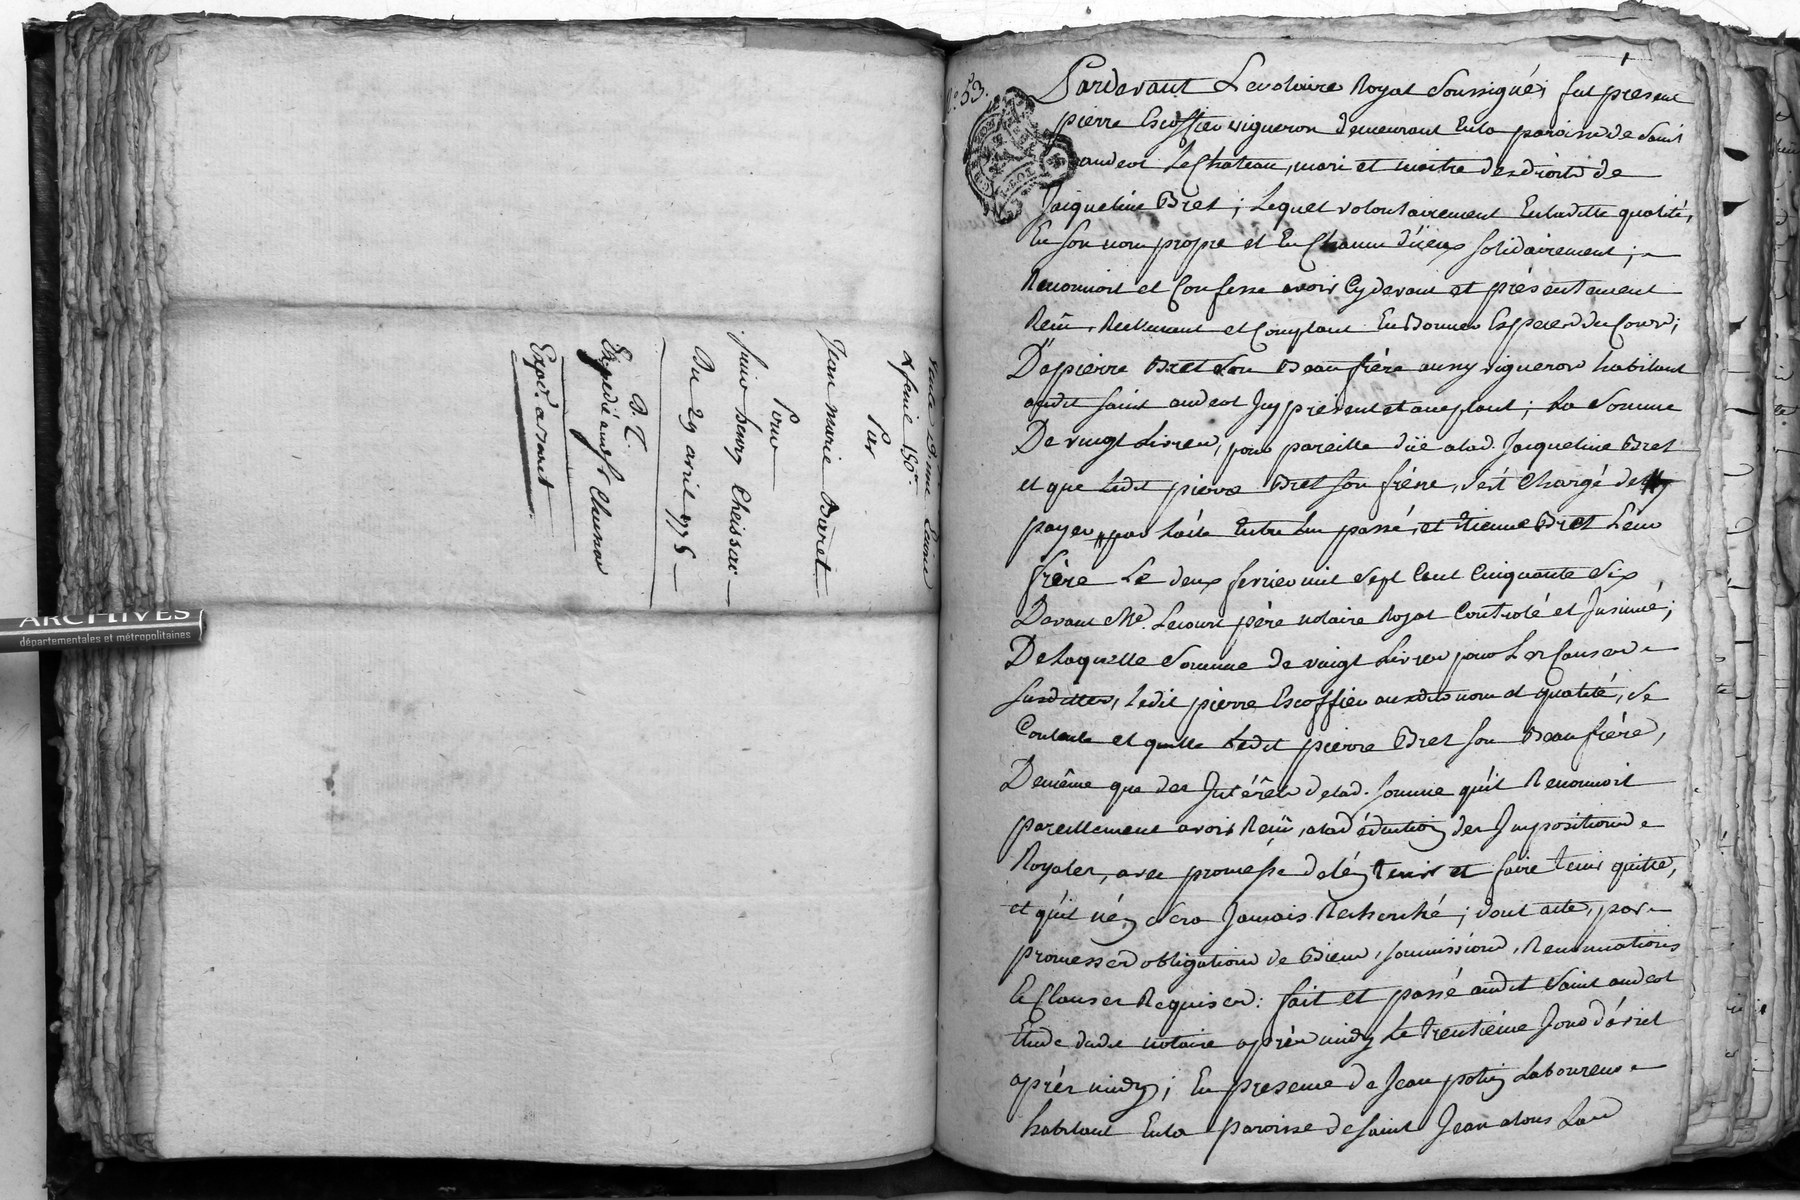 vente D'une
Par
Jean marie Barret
Pour
Du 29 avril 1775
D. T.
Expedié
Exp.
ARCHIVES
départementales et métropolitaines
53.
Pardevant Le notaire Royal Soussigné; fut présent
pierre Escoffier vigneron demeurant En la paroisse de Saint
andeol Le Chateau, mari et maitre des droits de
Jacqueline Bret; Lequel volontairement En laditte qualité,
En son nom propre et En Chacun d'iceux solidairement;
Reconnoit et Confesse avoir Cy devant et présentement
Reçû Réellement et Comptant En Bonnes Espèces du Cours;
De pierre Bret son Beau frère aussy vigneron habitant
audit saint andeol Icy présent et acceptant; La Somme
De vingt Livres, pour pareille düe a lad. Jacqueline Bret
et que ledit pierre Bret son frère, s'ést Chargé de
payer par l'acte Entre Lui passé, et Etienne Bret Leur
frère Le deux fevrier mil Sept Cent Cinquante Six
Devant Me. Lecourt père notaire Royal Controlé et Insinué;
De laquelle Somme de vingt Livres pour Les Causes
susdittes, Ledit pierre Escoffier ausdits nom et qualité, Se
Contente et quitte Ledit pierre Bret son Beau frére,
De même que des Intérêts de lad. somme qu'il Reconnoit
pareillement avoir Reçû, a la déduction des Impositions
Royales, avec promesse de l'én tenir et faire tenir quitte,
et qu'il n'én Sera Jamais Recherché; dont acte, par
promesses obligations de Biens, soumissions, Renonciations
Et Clauses Requises: fait et passé audit Saint andeol
Etude dudit notaire après midy Le trentième Jour d'avril
après midy; En presence de Jean potin Laboureur
habitant En la paroisse de saint Jean